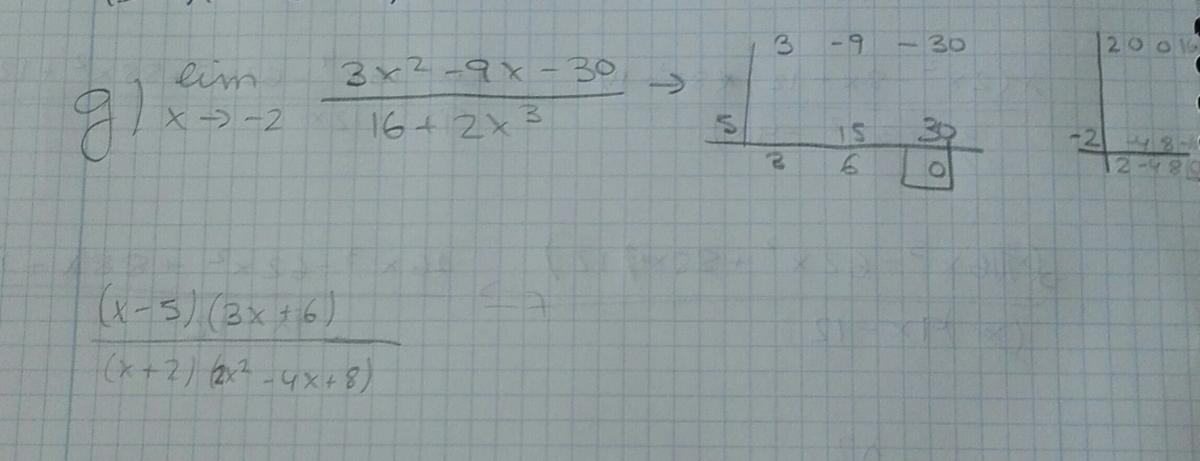 g) lim x→-2 3x² -9x -30 / 16 + 2x³ →
3 -9 -30
5 15 30
3 6 0
2 0 0 16
-2 -4 8
2 -4 8
(x-5)(3x+6)
(x+2)(2x²-4x+8)